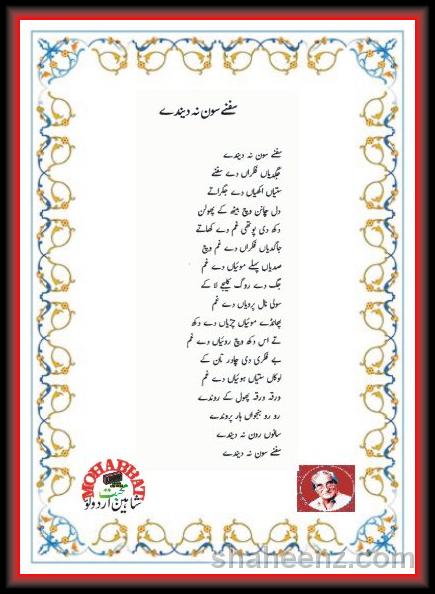 سفنے سون نہ دیندے
سفنے سون نہ دیندے
جگدیاں فکراں دے سفنے
ستیاں اکھیاں دے جگراتے
دل چانن وچ بیٹھ کے پھولن
دکھ دی پوتھی غم دے کھاتے
جاگدیاں فکراں دے غم وچ
صدیاں پہلے موئیاں دے غم
جگ دے روگ کلیجے لا کے
سولی نال پرویاں دے غم
بھانڈے موئیاں چڑیاں دے دکھ
تے اس دکھ وچ روئیاں دے غم
بے فکری دی چادر تان کے
لوکاں ستیاں ہوئیاں دے غم
ورقہ ورقہ پھول کے روندے
رو رو ہنجواں ہار پروندے
سانوں رون نہ دیندے
سفنے سون نہ دیندے
MOHABBAT
محبت
شاہین اردو لو
shaheenz.com